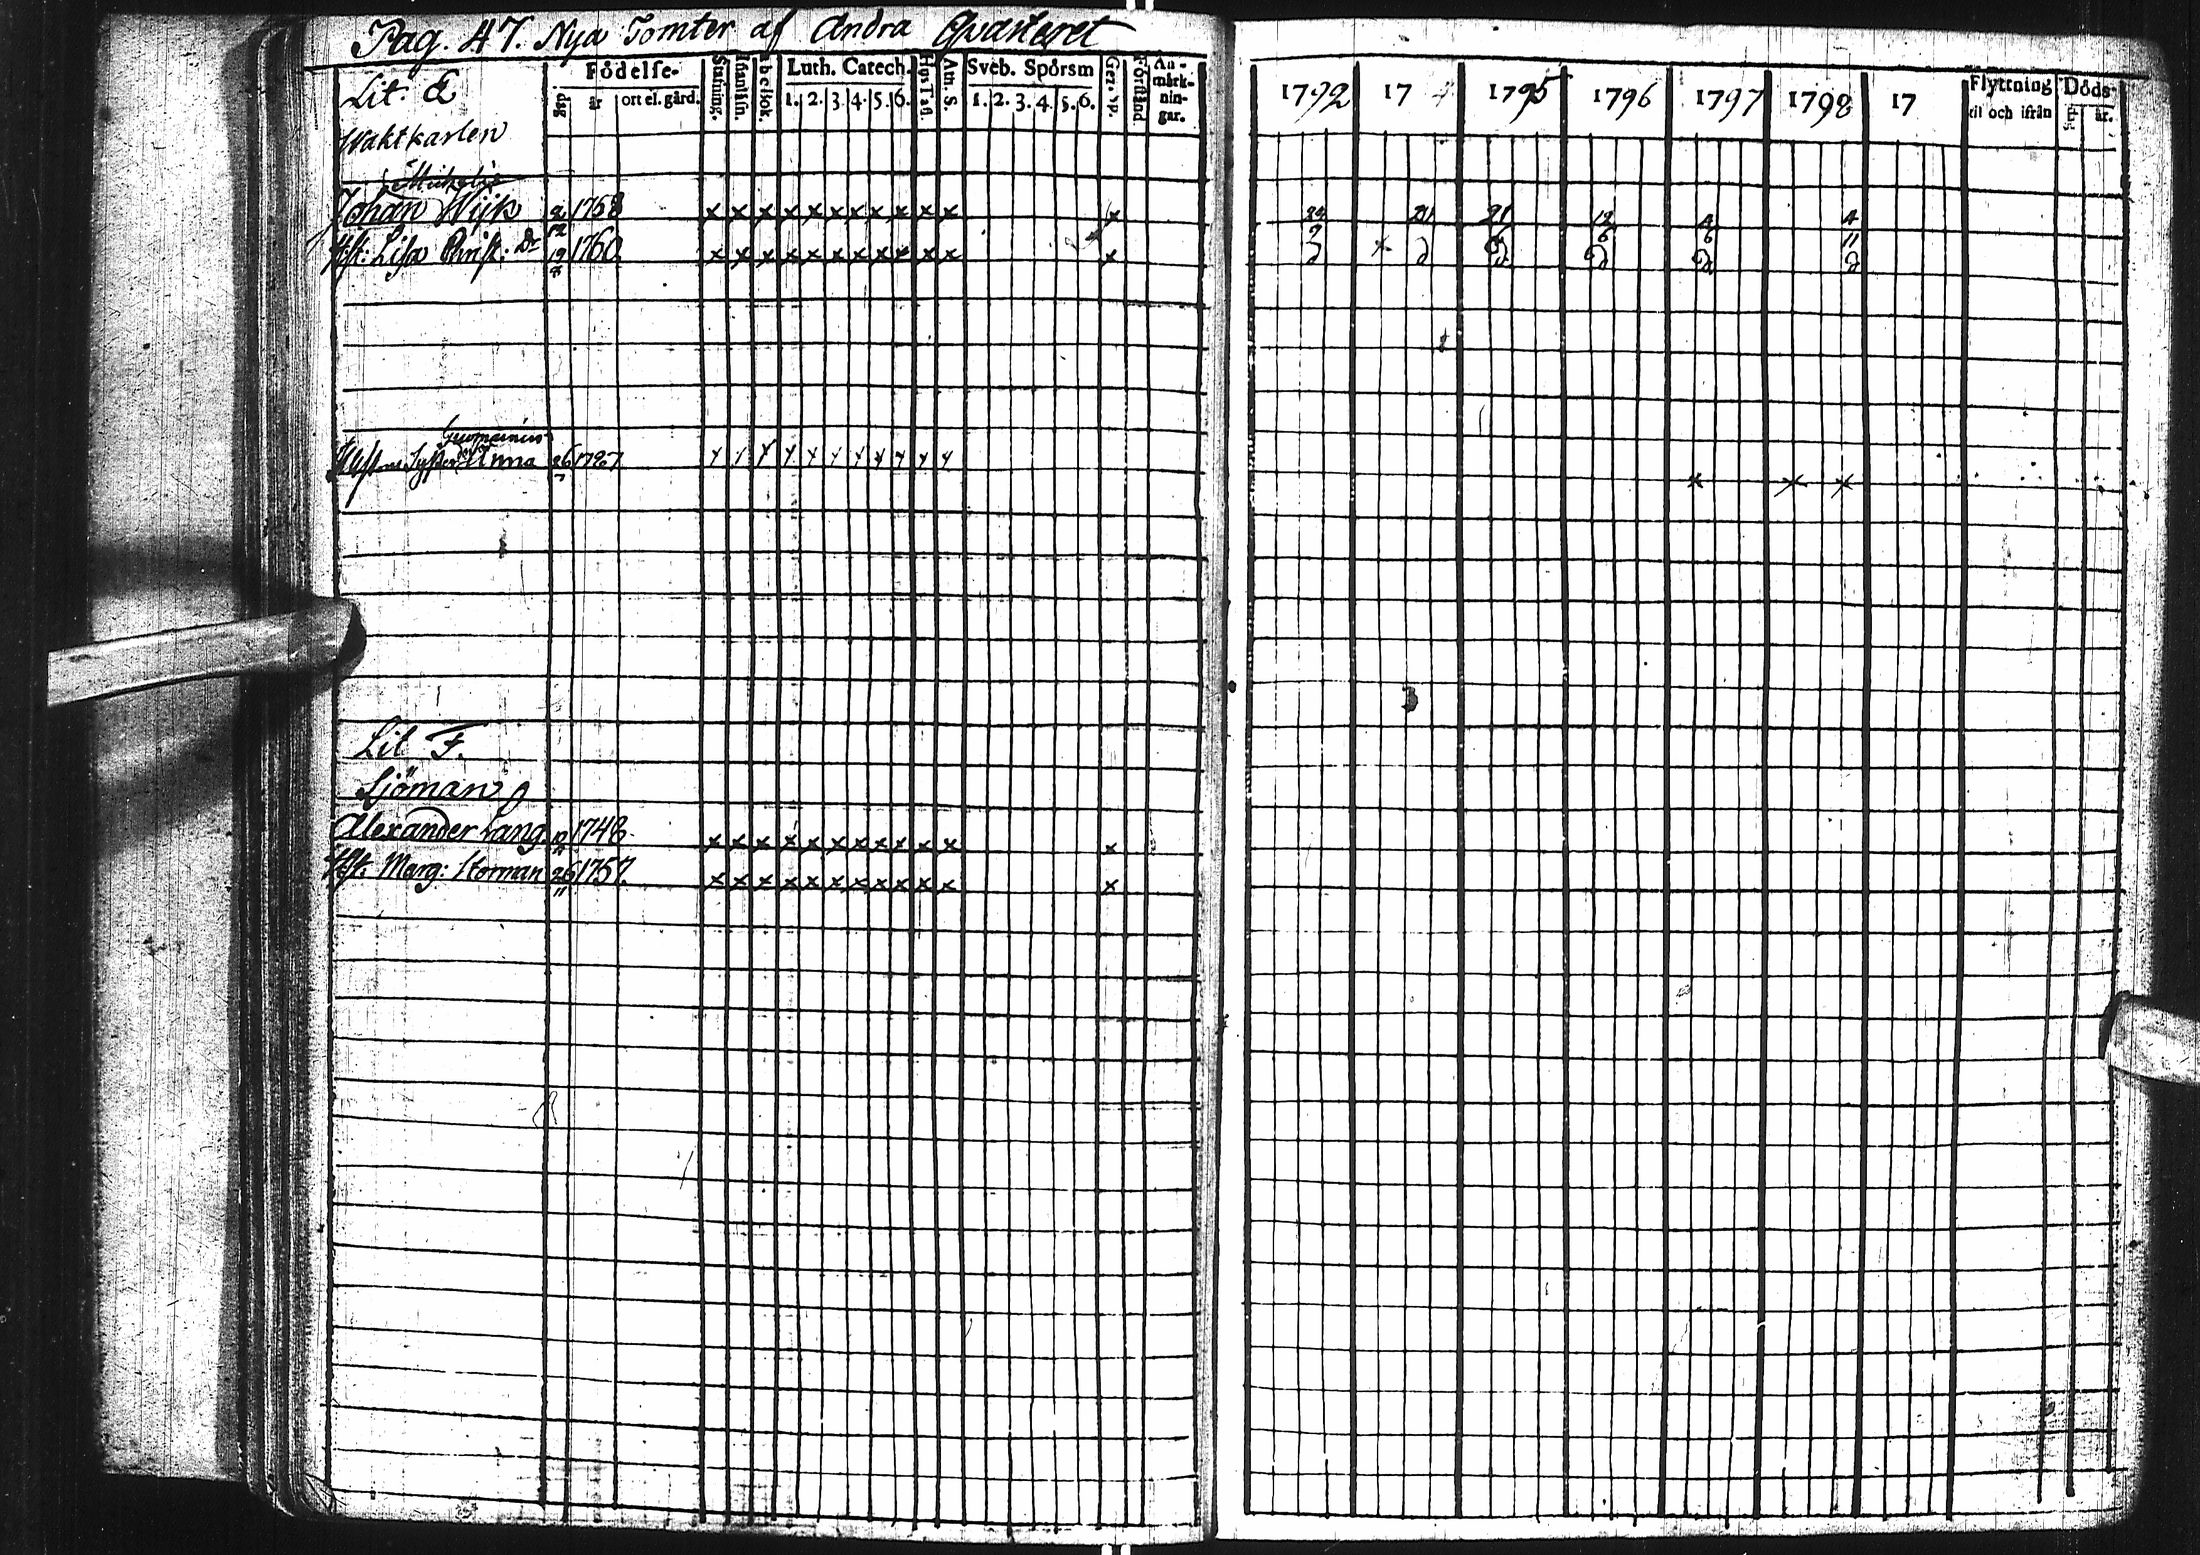 Pag. 47. Nya Tomter af Andra Qvarteret
Födelse- Stafning. Luth. Catech. Hus Tafl. Ath. S. Sveb. Spörsm Ger. sp. Förstånd. An-märk-nin-gar.
dag år ort el. gård. 1. 2. 3. 4. 5. 6. 1. 2. 3. 4. 5. 6.
1792 17 4 1795 1796 1797 1798 17 Flyttning til och ifrån Döds- år.
Lit. E
Waktkarlen
Johan Wijk 2 1768 x x x x x x x x x x x x 24 21 21 12 4 4
12 9 6 6 11
Hust: Lisa Christ: Dr 19 1760 x x x x x x x x x x x x
Hustrus Syster Anna 26 1727
x x x
Lit F.
Sjöman
Alexander Lang 1748 x x x x x x x x x x x x
Hust: Marg: Homan 26 1757 x x x x x x x x x x x x
11